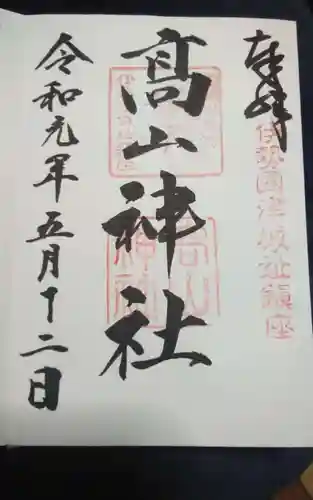 奉拝
伊勢国津城址鎮座
髙山神社
髙山神社
令和元年五月十二日